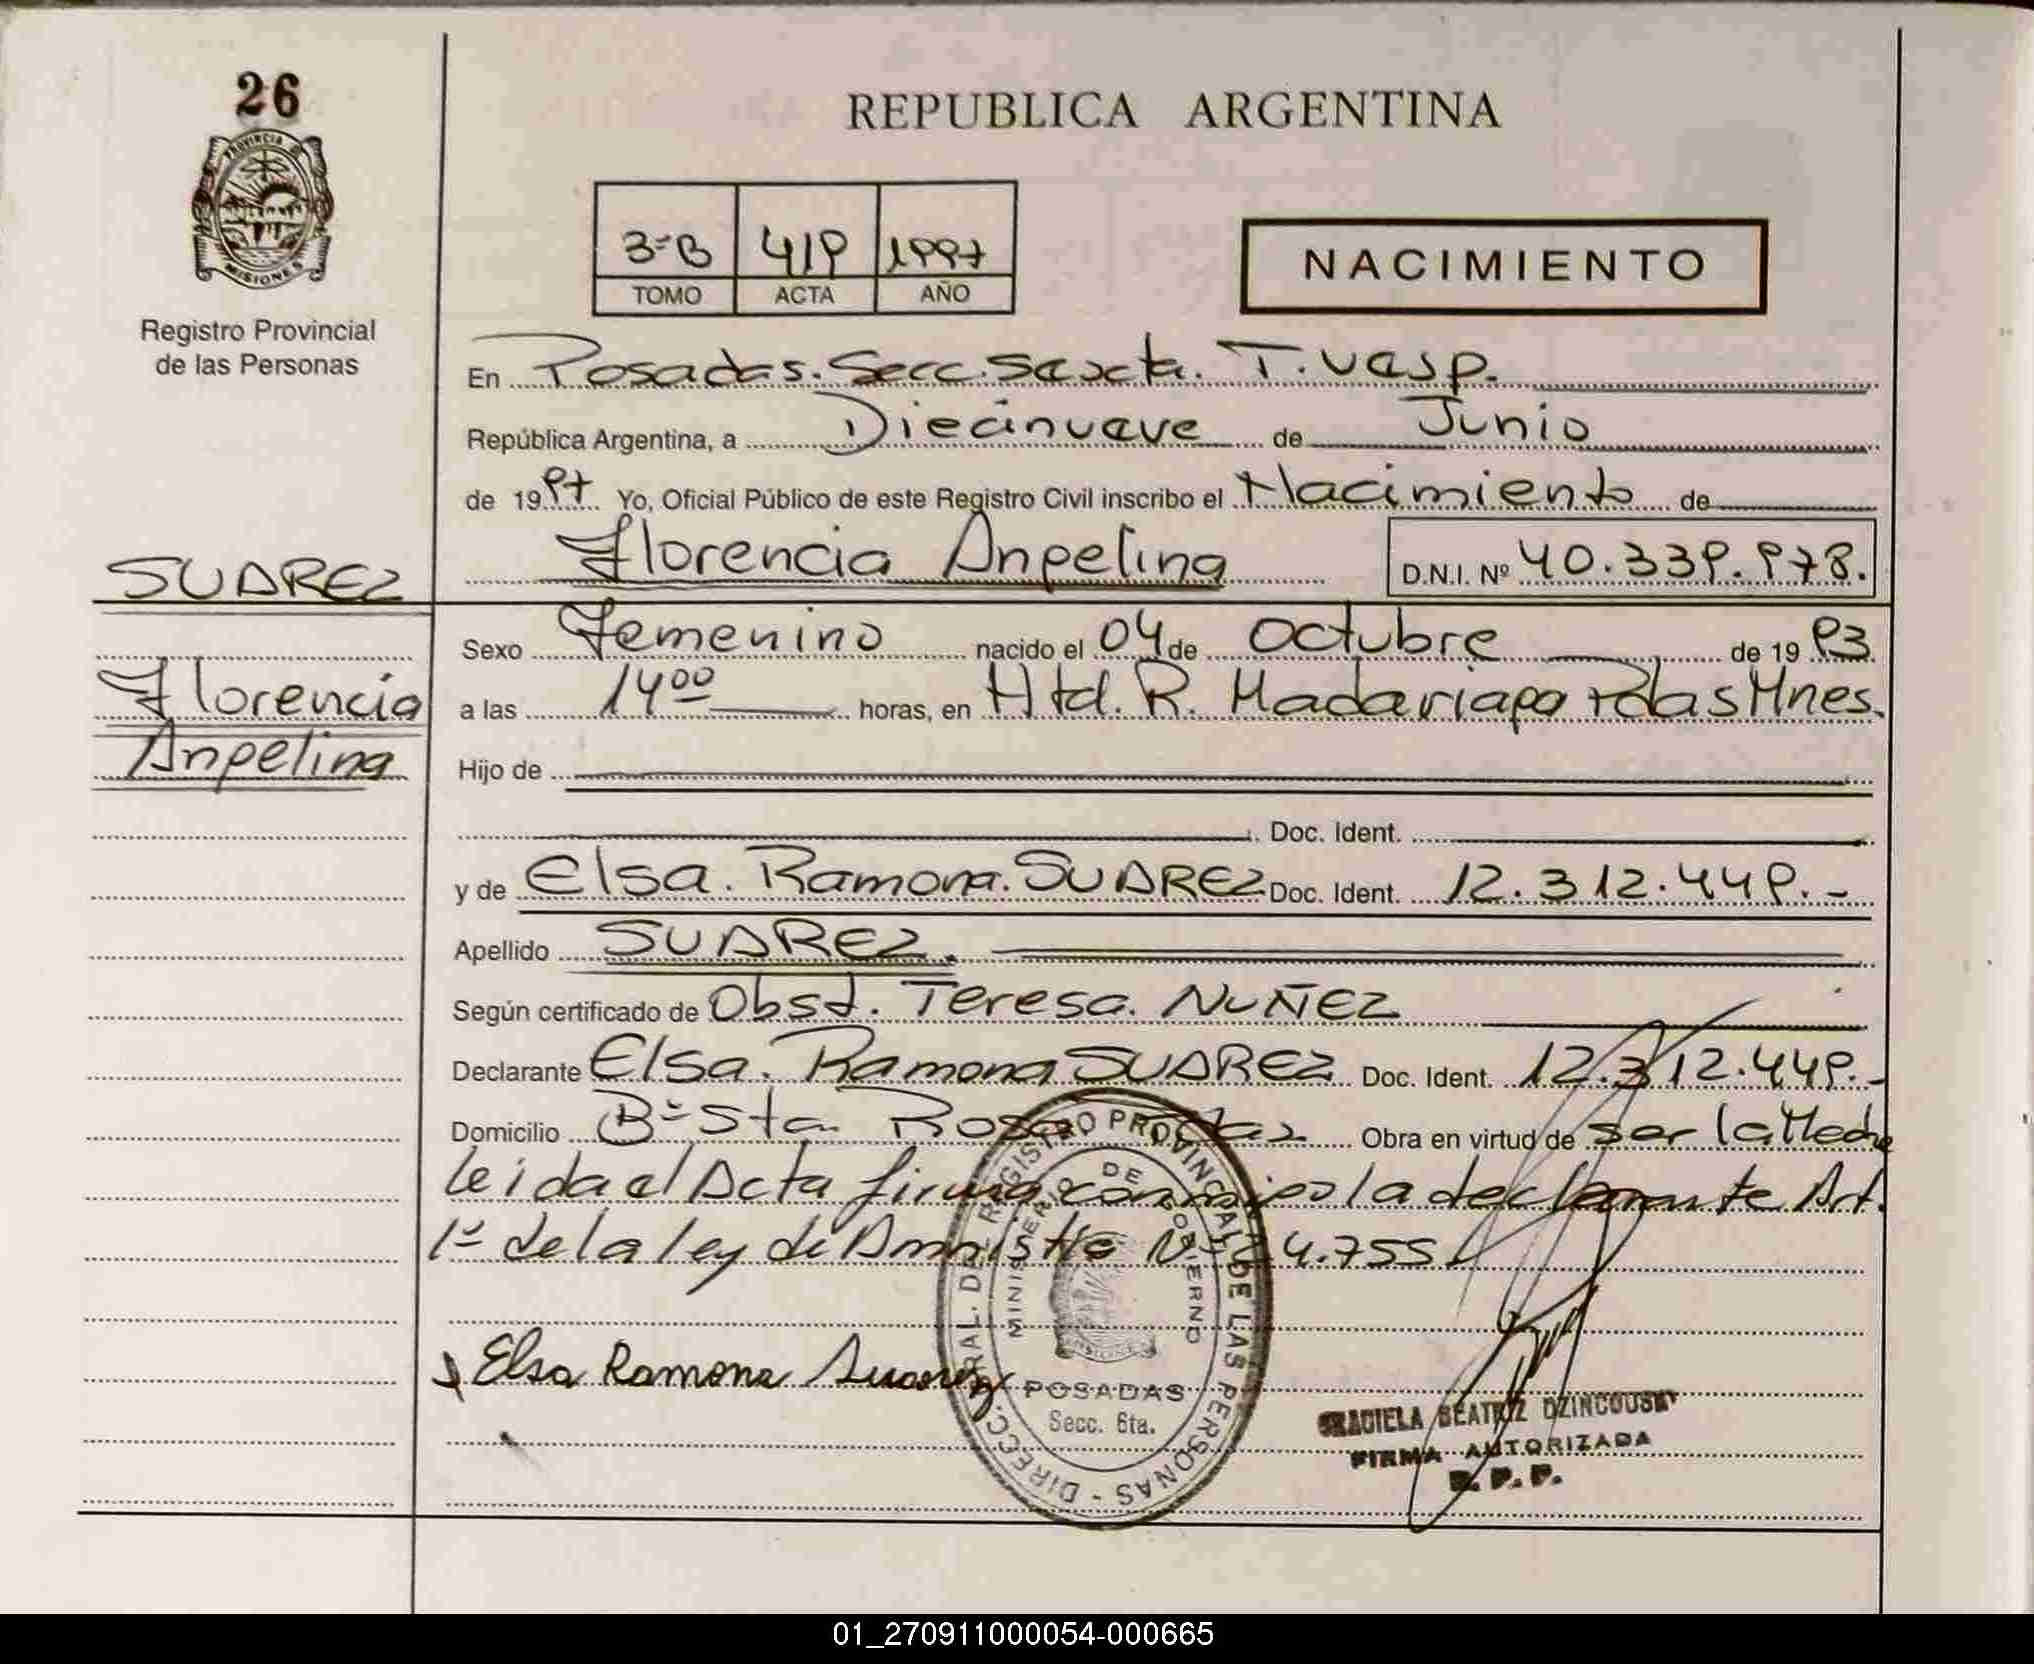 26
PROVINCIA DE
MISIONES
Registro Provincial
de las Personas
REPUBLICA ARGENTINA
3-B 419 1997
TOMO ACTA AÑO
NACIMIENTO
En Posadas. Secc. Sexcta. T. vesp.
República Argentina, a Diecinueve de Junio
de 1997 Yo, Oficial Público de este Registro Civil inscribo el Nacimiento de
Florencia Angelina D.N.I. Nº 40.339.978.
SUAREZ
Florencia
Angelina
Sexo Femenino nacido el 04 de Octubre de 1993
a las 1400 horas, en Htd. R. Madariaga Pdas Mnes.
Hijo de
Doc. Ident.
y de Elsa. Ramona. SUAREZ Doc. Ident. 12.312.449.-
Apellido SUAREZ.
Según certificado de Obst. Teresa. NUÑEZ
Declarante Elsa. Ramona SUAREZ Doc. Ident. 12.312.449.-
Domicilio Bº Sta Rosa Pdas Obra en virtud de ser la Madre
leida el Acta firma conmigo la declarante Art.
1º de la ley de Amnistia Nº 24.755
Elsa Ramona Suarez
DIRECC. GRAL. DEL REGISTRO PROVINCIAL DE LAS PERSONAS -
MINISTERIO DE GOBIERNO
POSADAS
Secc. 6ta.
GRACIELA BEATRIZ DZINCOUSKY
FIRMA AUTORIZADA
R. P. P.
01_270911000054-000665